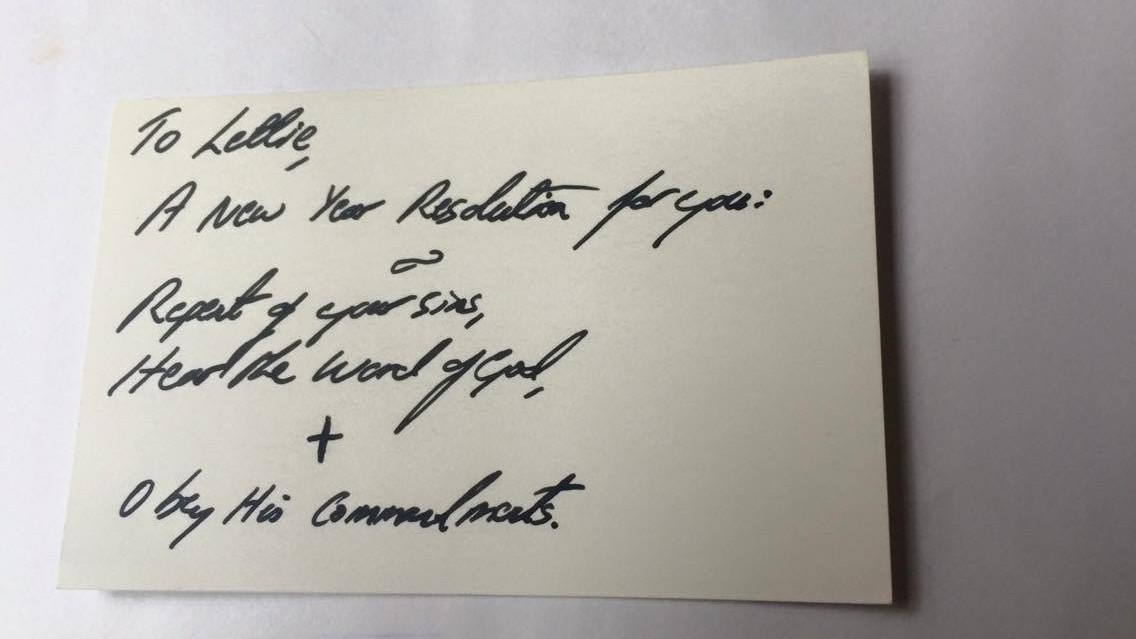 To Lellie,
A New Year Resolution for you:
~
Repent of your sins,
Hear the Word of God,
+
Obey His Commandments.